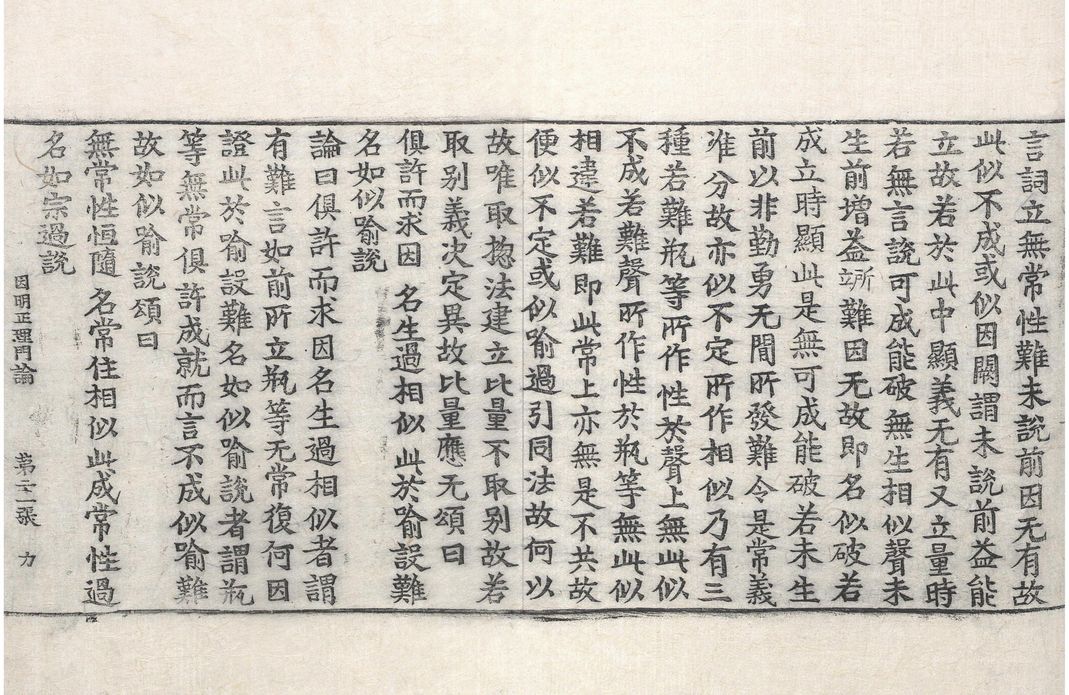 言詞立無常性難未說前因无有故
此似不成或似因闕謂未說前益能
立故若於此中顯義无有又立量時
若無言說可成能破無生相似聲未
生前增益所難因无故即名似破若
成立時顯此是無可成能破若未生
前以非勤勇无間所發難令是常義
准分故亦似不定所作相似乃有三
種若難瓶等所作性於聲上無此似
不成若難聲所作性於瓶等無此似
相違若難即此常上亦無是不共故
便似不定或似喻過引同法故何以
故唯取揔法建立比量不取別故若
取別義決定異故比量應无頌曰
俱許而求因 名生過相似 此於喻設難
名如似喻說
論曰俱許而求因名生過相似者謂
有難言如前所立瓶等无常復何因
證此於喻設難名如似喻說者謂瓶
等無常俱許成就而言不成似喻難
故如似喻說頌曰
無常性恒隨 名常住相似 此成常性過
名如宗過說
因明正理門論 第二張 力